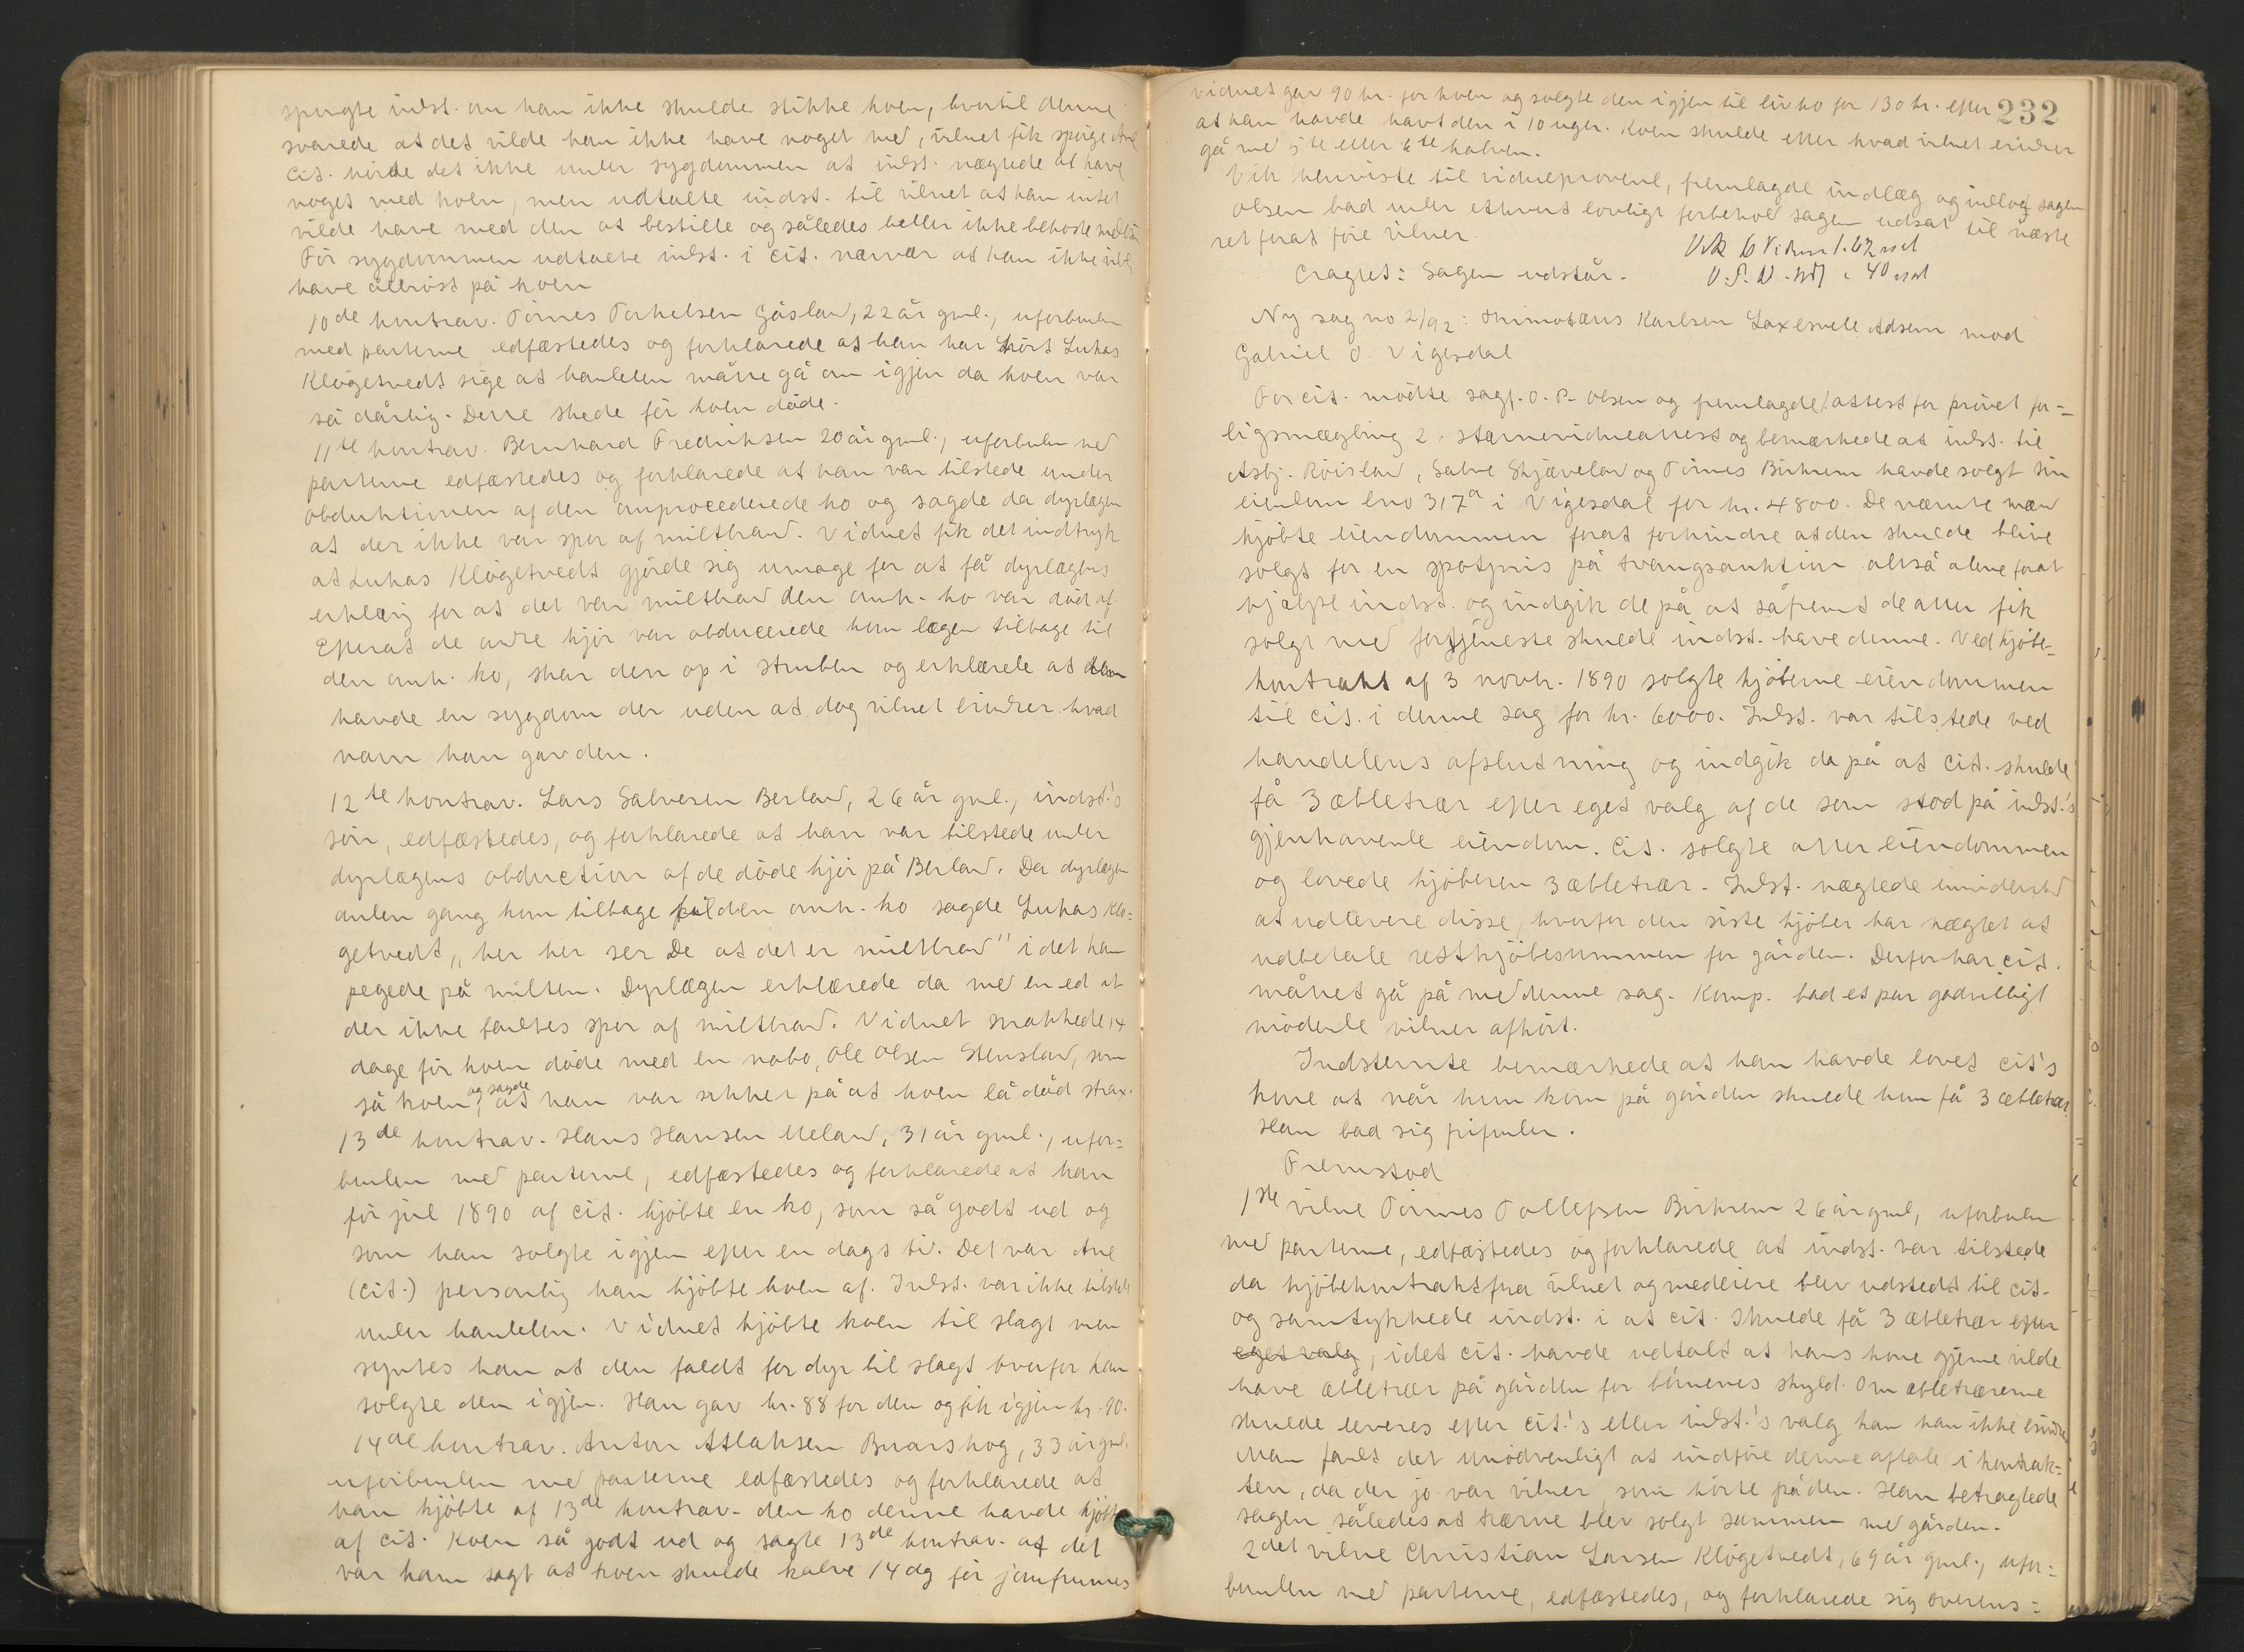 spurgte indst. om han ikke skulde stikke koen, hvortil denne
svarede at det vilde han ikke have noget med, vidnet fik spörge Ane
Cit. hörde det ikke under sygdommen at indst. nægtede at have
noget med koen, men udtalte indst. til vidnet at han intet
vilde have med den at bestille og således heller ikke bekoste medisin
För sygdommen udtalte indst. i cit. nærvær at han ikke vilde
have åtbröst på koen
10de kontrav. Tönnes Torkelsen Gåsland, 22 år gml., uforbunden
med parterne edfæstedes og forklarede at han har hört Lukas
Klögetvedt sige at handelen måtte gå om igjen da koen var
så dårlig. Dette skede för koen döde.
11te kontrav. Bernhard Fredriksen 20 år gml., uforbunden med
parterne edfæstedes og forklarede at han var tilstede under
obduktionen af den omprocederede ko og sagde da dyrlægen
at der ikke var spor af miltbrand. Vidnet fik det indtryk
at Lukas Klögetvedt gjörde sig umage for at få dyrlægens
erklæring for at det var miltbrand den omh. ko var död af
Efterat de andre kjör var obducerede kom lægen tilbage til
den omh. ko, skar den op i struben og erklærede at den
havde en sygdom der uden at dog vidnet erindrer hvad
navn han gav den.
12te kontrav. Lars Salvesen Berland, 26 år gml., indst.'s
sön, edfæstedes, og forklarede at han var tilstede under
dyrlægens obduction af de döde kjör på Berland. Da dyrlægen
anden gang kom tilbage til den omh. ko sagde Lukas Klö=
getvedt „her her ser De at det er miltbrand" idet han
pegede på milten. Dyrlægen erklærede da med en ed at
der ikke fandtes spor af miltbrand. Vidnet snakkede 14
dage för koen döde med en nabo, Ole Olsen Stensland, som
så koen, og sagde at han var sikker på at koen lå död strax.
13de kontrav. Hans Hansen Meland, 31 år gml., ufor=
bunden med parterne, edfæstedes og forklarede at han
för jul 1890 af cit. kjöbte en ko, som så godt ud og
som han solgte igjen efter en dags tid. Det var Ane
(cit.) personlig han kjöbte koen af. Indst. var ikke tilstede
under handelen. Vidnet kjöbte koen til slagt men
syntes han at den faldt for dyr til slagt hvorfor han
solgte den igjen. Han gav kr. 88 for den og fik igjen kr. 90.
14de kontrav. Anton Atlaksen Bruarskog, 33 år gml.
uforbunden med parterne edfæstedes og forklarede at
han kjöbte af 13de kontrav. den ko denne havde kjöbt
af cit. Koen så godt ud og sagte 13de kontrav. at det
var ham sagt at koen skulde kalve 14 dg för jomfrumes
vidnet gav 90 kr. for koen og solgte den igjen til liv ko for 130 kr. efter 232
at han havde havt den i 10 uger. Koen skulde efter hvad vidnet erindrer
gå med 5te eller 6te kalven.
Vik henviste til vidneprovene, fremlagde indlæg og indlod sagen
Olsen bad under ethvert lovligt forbehold sagen udsat til næste
ret forat före vidner.
Cragtet: Sagen udstår.
Ny sag no 2/92: Thimotæus Karlsen Laxesvele Adsem mod
Gabriel O. Vigesdal
For cit. mödte sagf. O. P. Olsen og fremlagde 1. attest for prövet for=
ligsmægling 2. stævnevidneattest og bemærkede at indst. til
Asbj. Röisland, Salve Skjæveland og Tönnes Birkrem havde solgt sin
eiendom lno 317a i Vigesdal for kr. 4800. De nævnte mænd
kjöbte eiendommen forat forhindre at den skulde blive
solgt for en spotpris på tvangsauktion altså alene forat
hjælpe indst. og indgik de på at såfremt de atter fik
solgt med fortjeneste skulde indst. have denne. Ved kjöbe=
kontrakt af 3 novbr. 1890 solgte kjöberne eiendommen
til cit. i denne sag for kr. 6000. Indst. var tilstede ved
handelens afslutning og indgik da på at cit. skulde
få 3 æbletrær efter eget valg af de som stod på indst.'s
gjenhavende eiendom. Cit. solgte atter eiendommen
og lovede kjöberen 3 æbletrær. Indst. nægtede imidlertid
at udlevere disse, hvorfor den siste kjöber har nægtet at
udbetale restkjöbesummen for gården. Derfor har cit.
måttet gå på med denne sag. Komp. bad et par godvilligt
mödende vidner afhört.
Indstevnte bemærkede at han havde lovet cit's
kone at når hun kom på gården skulde hun få 3 æbletrær.
Han bad sig frifunden.
Fremstod
1ste vidne Tönnes Tollefsen Birkrem 26 år gml, uforbunden
med parterne, edfæstedes og forklarede at indst. var tilstede
da kjöbekontrakt fra vidnet og medeiere blev udstedt til cit.
og samtykkede indst. i at cit. skulde få 3 æbletrær efter
eget valg, idet cit. havde udtalt at hans kone gjerne vilde
have æbletrær på gården for börnenes skyld. Om æbletrærne
skulde leveres efter cit.'s eller indst.'s valg kan han ikke erindre
Man fandt det unödvendigt at indföre denne aftale i kontrak=
ten, da der jo var vidner som hörte på den. Han betragtede
sagen således at trærne blev solgt sammen med gården.
2det vidne Christian Larsen Klögetvedt, 69 år gml., ufor=
bunden med parterne, edfæstedes, og forklarede sig overens=